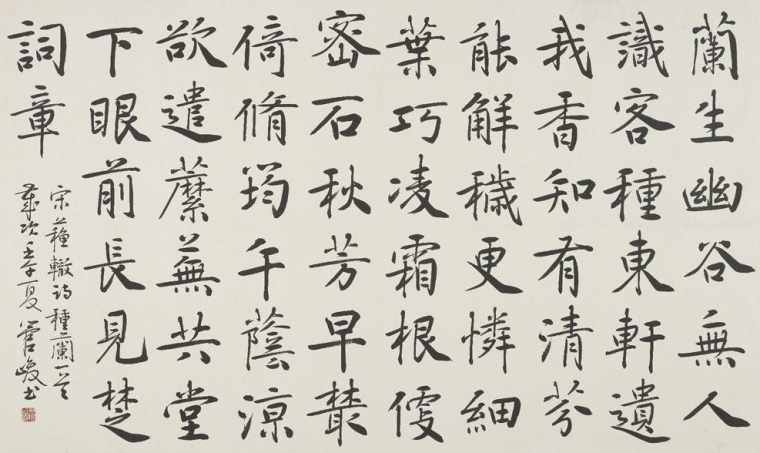 蘭生幽谷無人
識客種東軒遺
我香知有清芬
能解穢更憐細
葉巧凌霜根便
密石秋芳早叢
倚脩筠午蔭涼
欲遣蘼蕪共堂
下眼前長見楚
詞章
宋蘓轍詩種蘭一首
歲次壬午夏管峻書